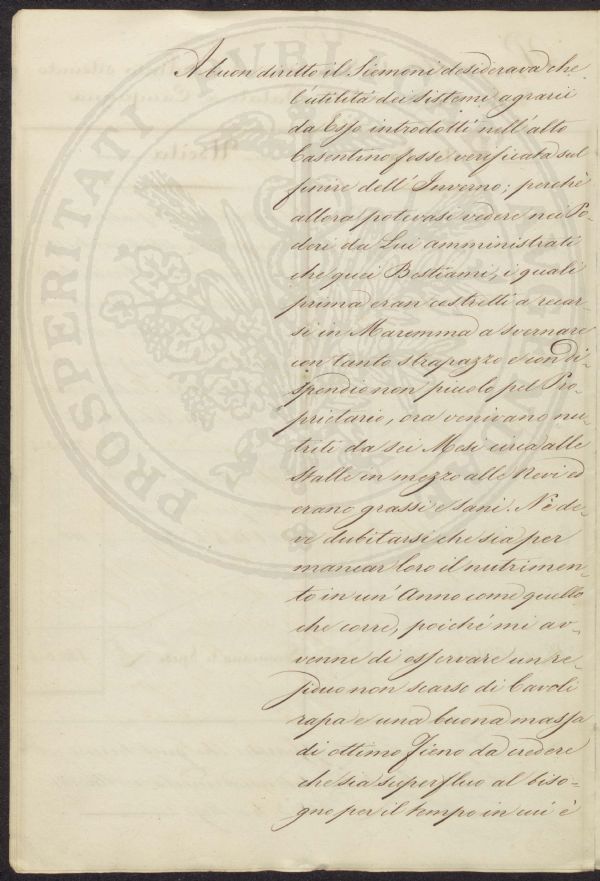 A buon diritto il Siemoni desiderava che
l'utilità dei sistemi agrarii
da Esso introdotti nell'alto
Casentino fosse verificata sul
finire dell'Inverno; perchè
allora potevasi vedere nei Po-
deri da Lui amministrati
che quei Bestiami, i quali
prima eran costretti a recar-
si in Maremma a svernare
con tanto strapazzo e con di-
spendio non piccolo pel Pro-
prietario, ora venivano nu-
triti da sei Mesi circa alle
Stalle in mezzo alle Nevi ed
erano grassi e sani. Nè de-
ve dubitarsi che sia per
mancar loro il nutrimen-
to in un'Anno come quello
che corre, poichè mi av-
venne di osservare un re-
siduo non scarso di Cavoli
rapa e una buona massa
di ottimo Fieno da credere
che sia superfluo al biso-
gno per il tempo in cui è
PROSPERITATI PUBLICAE